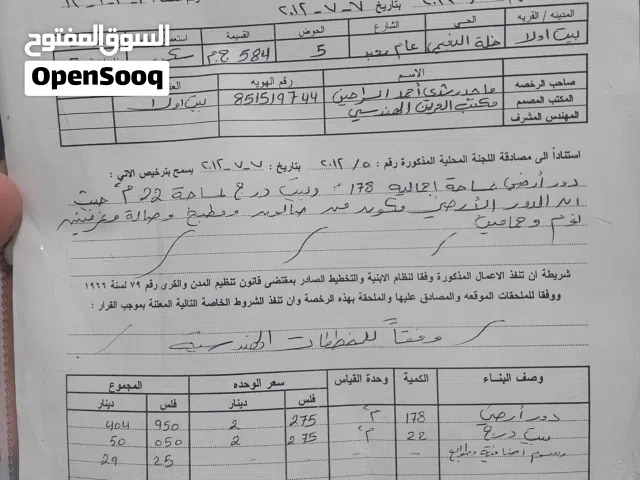 السوق المفتوح
OpenSooq
بتاريخ ٧-٧-٢٠١٢
المدينه / القريه الحي الشارع الحوض القيمة
بيت اولا خلة عام معبد 5 584 ج.م
الاسم رقم الهويه
صاحب الرخصه ماجد رشدي احمد 851519744 بيت اولا
المكتب المصمم مكتب الهندسي
المهندس المشرف
استناداً الى مصادقة اللجنة المحلية المذكورة رقم : ٢٠١٢/٥ بتاريخ : ٧-٧-٢٠١٢ يسمح بترخيص الاتي :
دور أرضي بمساحة اجماليه 178 م٢ وبيت درج بمساحة 22 م٢ حيث
ان الدور الأرضي مكون من صالون ومطبخ وصالة وغرفتين
نوم وحمامين
شريطة ان تنفذ الاعمال المذكورة وفقا لنظام الابنية والتخطيط الصادر بمقتضى قانون تنظيم المدن والقرى رقم ٧٩ لسنة ١٩٦٦
ووفقا للملحقات الموقعه والمصادق عليها والملحقة بهذه الرخصة وان تنفذ الشروط الخاصة التالية المعلنة بموجب القرار :
وفقاً للمخططات الهندسية
وصف البناء الكمية وحدة القياس سعر الوحده المجموع
فلس دينار فلس دينار
دور أرضي 178 م٢ 275 2 950 404
بيت درج 22 م٢ 275 2 050 50
رسوم اضافية - - 25 29